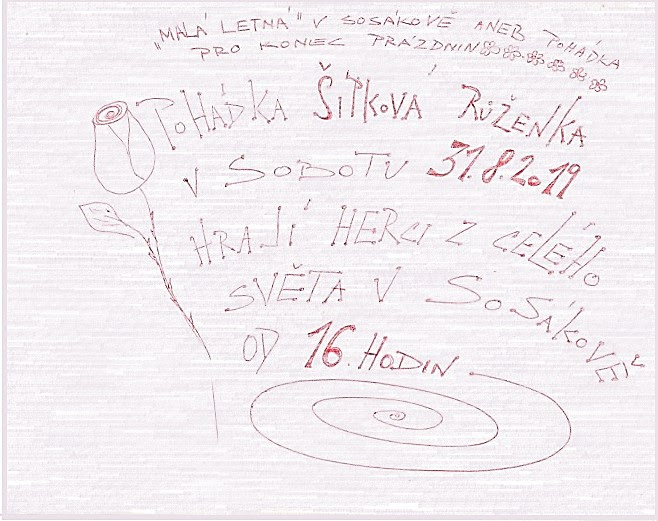 „MALÁ LETNÁ" V SOSÁKOVĚ ANEB POHÁDKA
PRO KONEC PRÁZDNIN
POHÁDKA ŠÍPKOVÁ RŮŽENKA
V SOBOTU 31.8.2019
HRAJÍ HERCI Z CELÉHO
SVĚTA V SOSÁKOVĚ
OD 16. HODIN